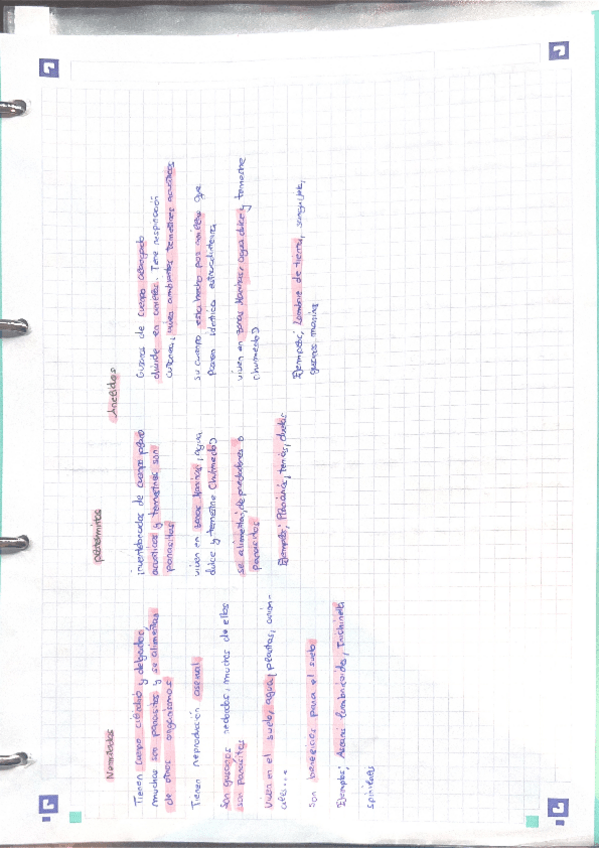 Nematodos
Tienen cuerpo cilíndrico y delgados,
muchos son parasitos y se alimentan
de otros organismos
Tienen reproducción asexual,
son gusanos redondos, muchos de ellos
son parasitos
Viven en el suelo, agua, plantas, anim-
ales...
Son beneficios para el suelo
Ejemplos; Ascaris lumbricoide,
spiralis
platelmintos
invertebrados de cuerpo plano
acuáticos y terrestres son
parasitos
viven en zonas marinas, agua
dulce y terrestre (húmedo)
se alimentan de predadores o
parasitos
Ejemplos; Planaria, tenia,
Anelidos
Gusanos de cuerpo alargado
divide en anillos. Tiene respiración
cutanea,
su cuerpo esta hecho por anillos que
viven en zonas Marinas agua dulce y terrestre
(humedo)
Ejemplos; Lombriz de tierra, sanguijuela,
gusanos marinos